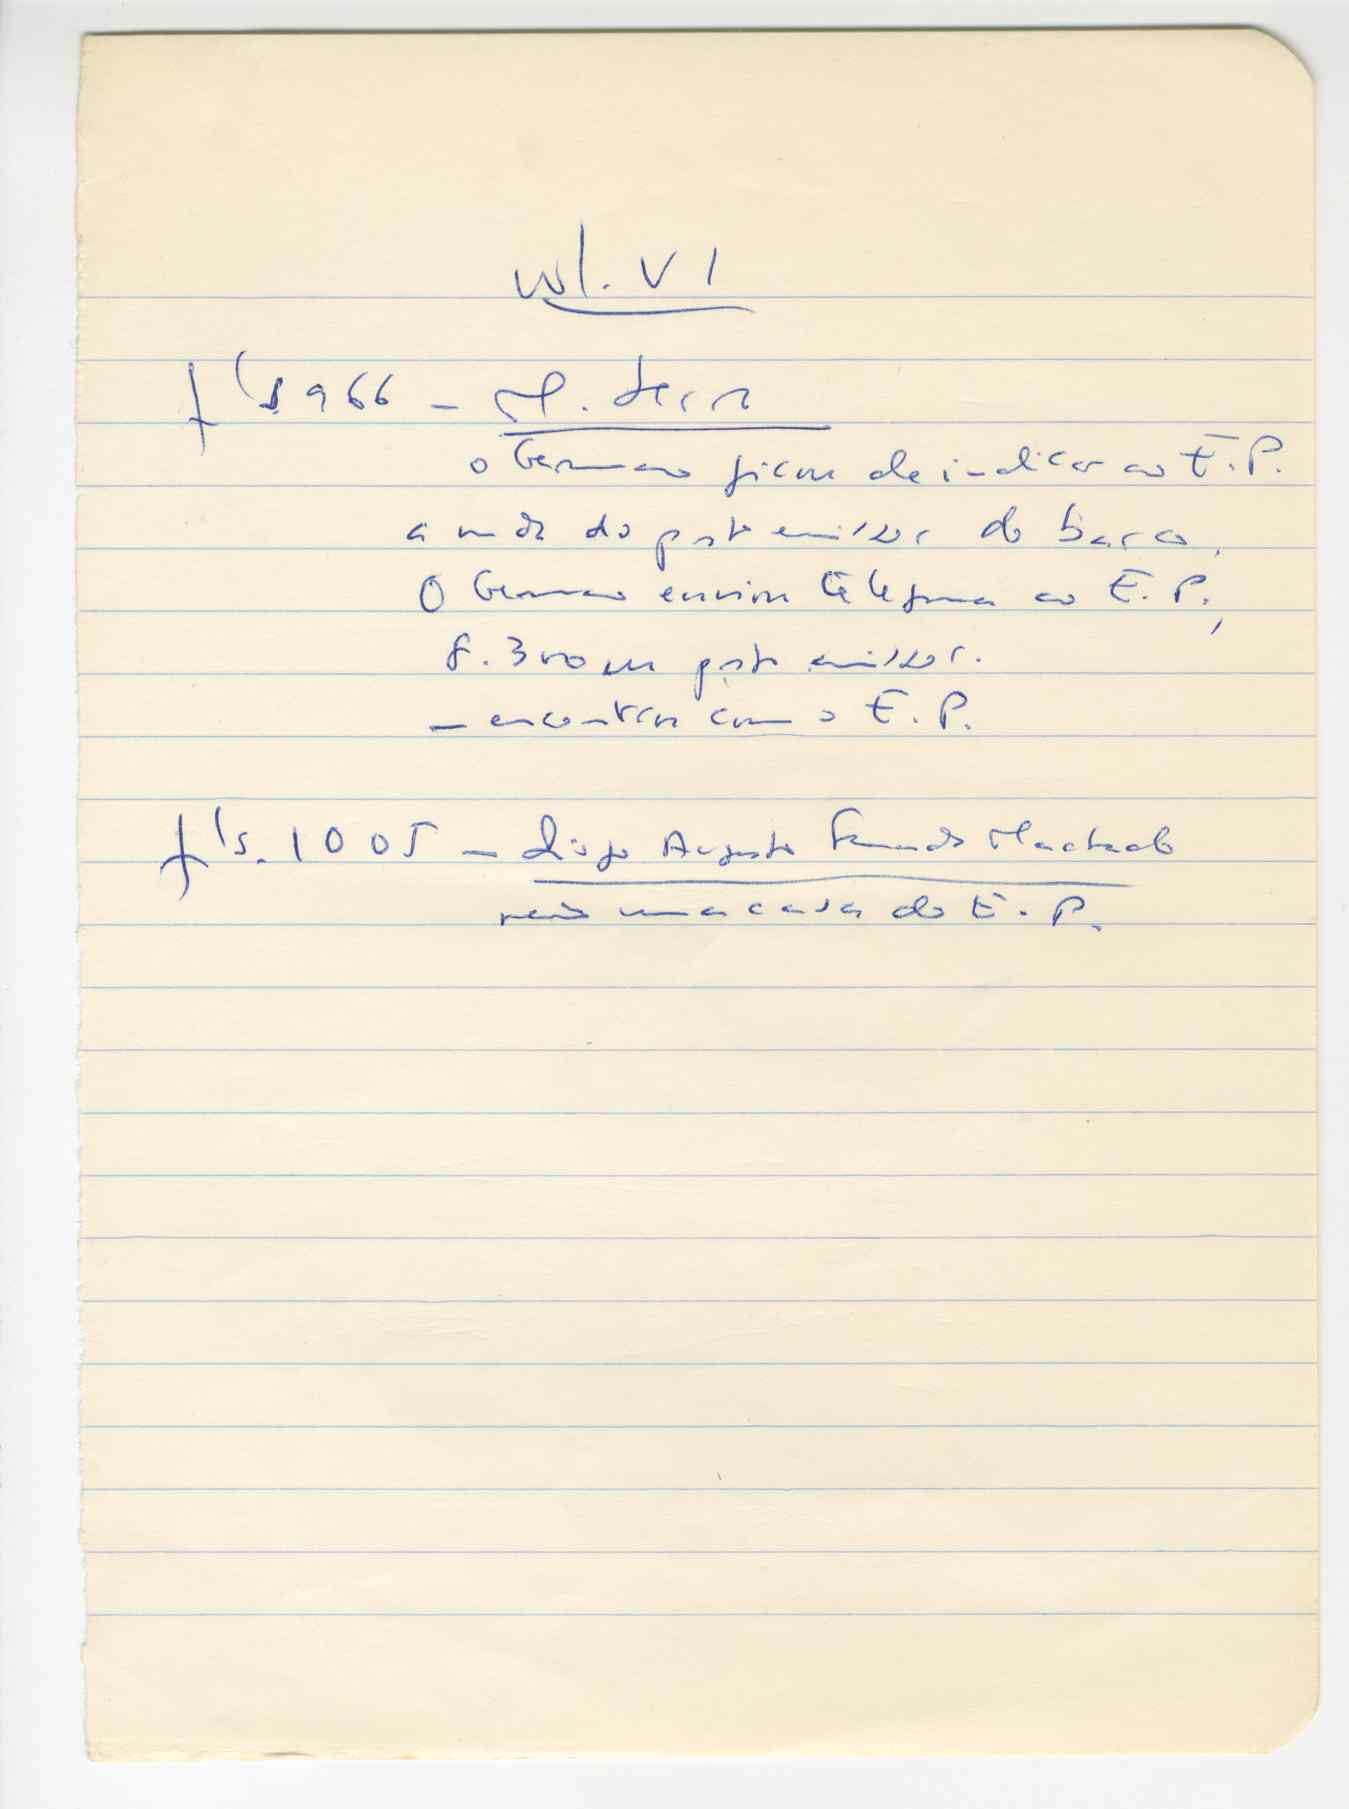 vol. VI
fls 966 – M. Serra
o Germano ficou de indicar ao E.P.
a onda do posto emissor do barco.
O Germano enviou telegrama ao E.P.,
8.300 m posto emissor.
– encontrou com o E.P.
fls. 1005 – Diogo Augusto Fernandes Machado
uma casa do E.P.